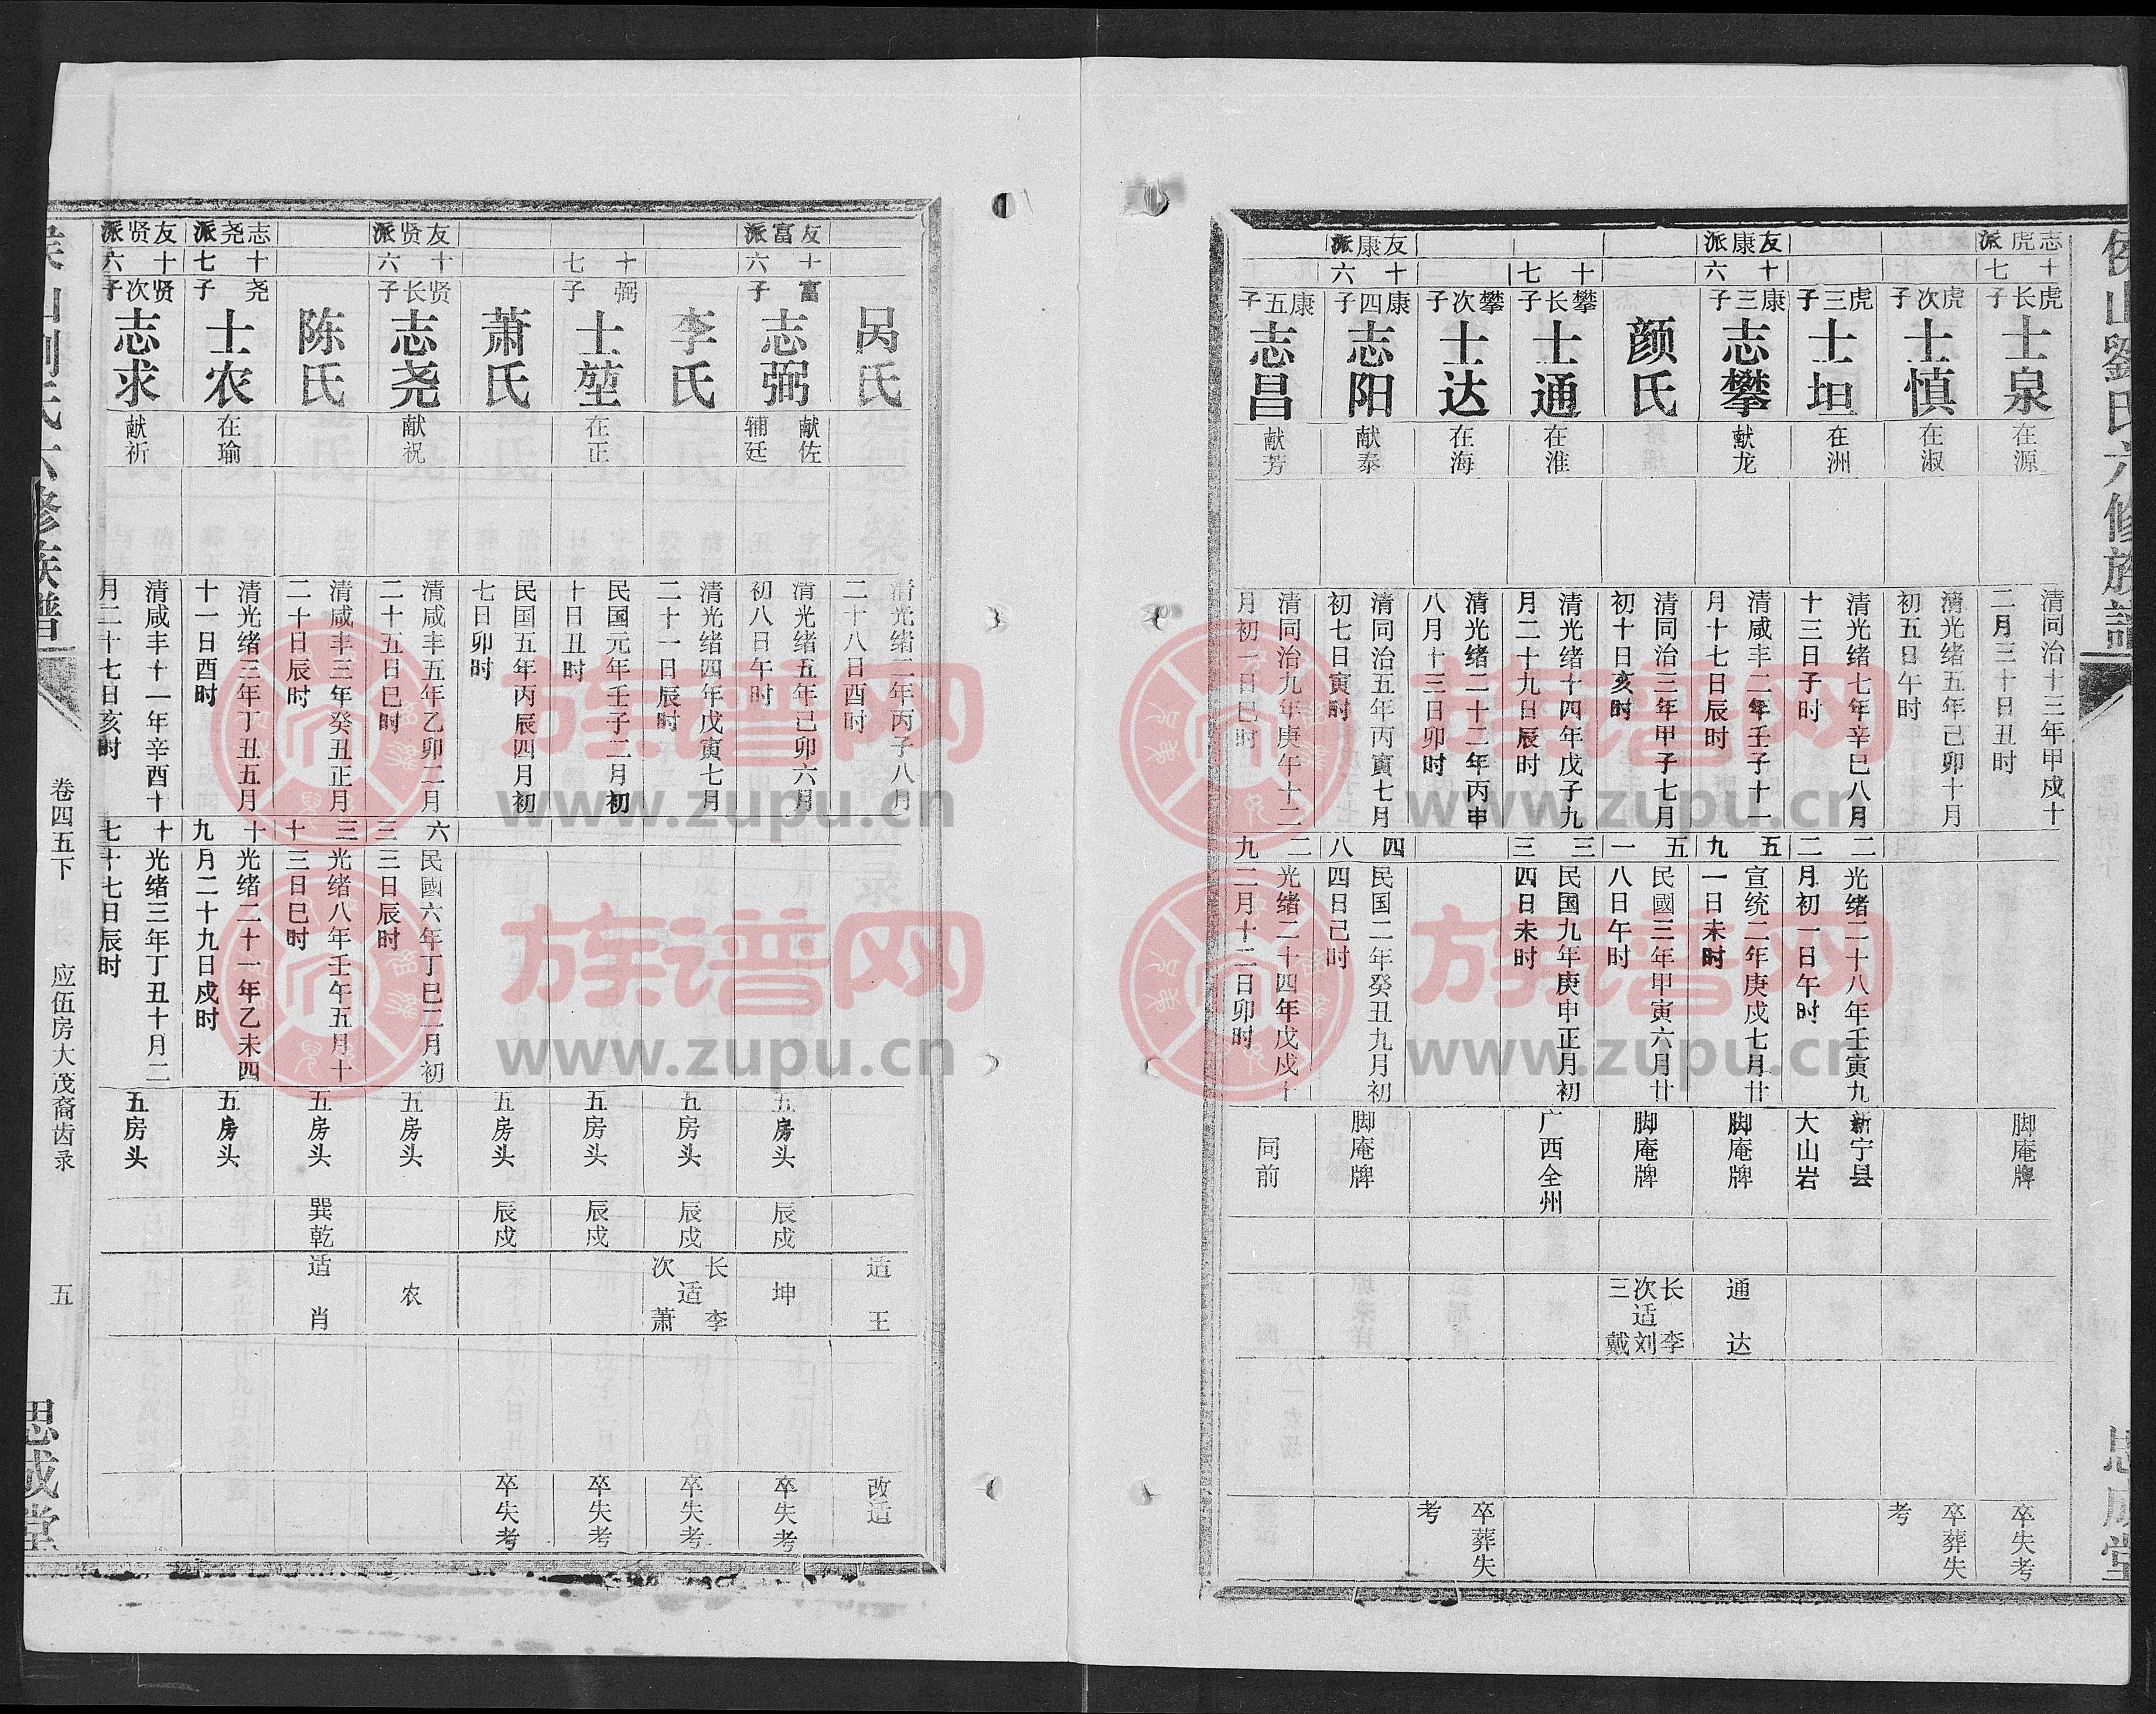 侯山劉氏六修族譜
志虎派
十七
虎长子
士泉
在源
清同治十三年甲戍十二月三十日丑时
脚庵牌
卒失考
虎次子
士慎
在淑
清光绪五年己卯十月初五日午时
卒葬失考
虎三子
士坦
在洲
清光绪七年辛巳八月十三日子时
二二
光绪二十八年壬寅九月初一日午时
新宁县大山岩
友康派
十六
康三子
志攀
献龙
清咸丰二年壬子十一月十七日辰时
五九
宣统二年庚戍七月廿一日未时
脚庵牌
通达
颜氏
清同治三年甲子七月初十日亥时
五一
民國三年甲寅六月廿八日午时
脚庵牌
长次三适李刘戴
十七
攀长子
士通
在淮
清光绪十四年戊子九月二十九日辰时
三三
民国九年庚申正月初四日未时
广西全州
攀次子
士达
在海
清光绪二十二年丙申八月十三日卯时
卒葬失考
友康派
十六
康四子
志阳
献泰
清同治五年丙寅七月初七日寅时
四八
民国二年癸丑九月初四日己时
脚庵牌
康五子
志昌
献芳
清同治九年庚午十二月初一日巳时
二九
光绪二十四年戊戍十二月十二日卯时
同前
吴氏
清光绪二年丙子八月二十八日酉时
适王
改适
友富派
十六
富子
志弼
献佐辅廷
清光绪五年己卯六月初八日午时
五房头
辰戍
坤
卒失考
李氏
清光绪四年戊寅七月二十一日辰时
五房头
辰戍
长次适李萧
卒失考
十七
弼子
士堃
在正
民国元年壬子二月初十日丑时
五房头
辰戍
卒失考
萧氏
民国五年丙辰四月初七日卯时
五房头
辰戍
卒失考
友贤派
十六
贤长子
志尧
献祝
清咸丰五年乙卯二月二十五日巳时
六三
民國六年丁巳二月初三日辰时
五房头
农
陈氏
清咸丰三年癸丑正月二十日辰时
三十
光绪八年壬午五月十三日巳时
五房头
巽乾
适肖
志尧派
十七
尧子
士农
在瑜
清光绪三年丁丑五月十一日酉时
十九
光绪二十一年乙未四月二十九日戍时
五房头
友贤派
十六
贤次子
志求
献祈
清咸丰十一年辛酉十月二十七日亥时
十七
光绪三年丁丑十月二十七日辰时
五房头
卷四五下
应伍房大茂裔齿录
五
思成堂
族谱网
www.zupu.cn
族谱网
www.zupu.cn
族谱网
www.zupu.cn
族谱网
www.zupu.cn